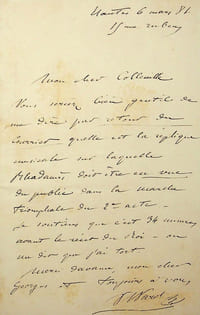 Nantes 6 mars 81.
15 rue Rubens
Mon cher Colleuille
Vous seriez bien gentil de
me dire par retour du
courrier quelle est la réplique
musicale sur laquelle
Rhadamès doit être en vue
du public dans la marche
triomphale du 2me acte -
Je soutiens que c'est 34 mesures
avant le récit du Roi - on
me dit que j'ai tort
Merci d'avance, mon cher
Georges et toujours à vous